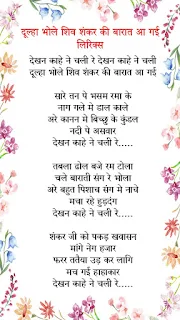 दूल्हा भोले शिव शंकर की बारात आ गई
लिरिक्स
देखन काहे ने चली रे देखन काहे ने चली
दूल्हा भोले शिव शंकर की बारात आ गई
सारे तन पे भसम रमा के
नाग गले मे डाल काले
अरे कानन मे बिच्छू के कुंडल
नदी पे असवार
देखन काहे ने चली रे.....
तबला ढोल बजे रम टोला
चले बाराती संग रे भोला
अरे बहुत पिशाच संग मे नाचे
मचा रहे हुड़दंग
देखन काहे ने चली रे.....
शंकर जी को पकड़ खवासन
मांगे नेग हजार
फरर ततैया उड़ कर लागि
मच गई हाहाकार
देखन काहे ने चली रे.....